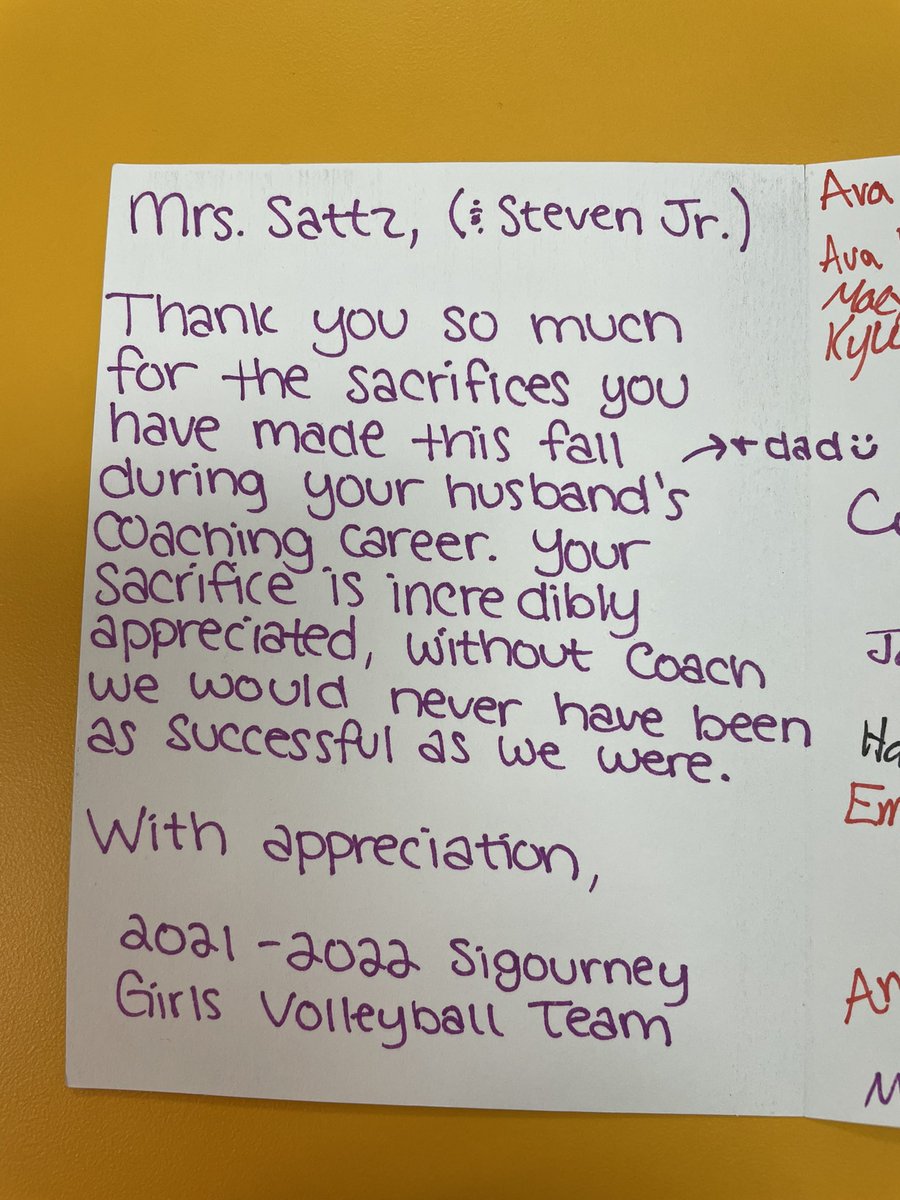 Mrs. Sattz, (& Steven Jr.)
Thank you so much
for the sacrifices you
have made this fall → + dad :)
during your husband's
coaching career. Your
sacrifice is incredibly
appreciated, without Coach
we would never have been
as successful as we were.
With appreciation,
2021-2022 Sigourney
Girls Volleyball Team
Ava
Ava